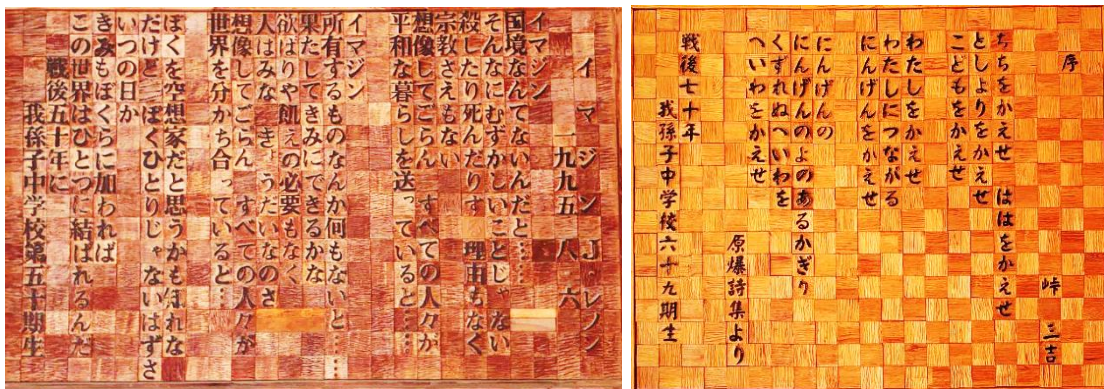 イマジン J・レノン
一九九五 八・六
イマジン
国境なんてないんだと……
そんなにむずかしいことじゃない
殺したり死んだりす 理由もなく
宗教さえもない
想像してごらん すべての人々が
平和な暮らしを送っていると……
イマジン
所有するものなんか何もないと……
果たしてきみにできるかな
欲はりや飢えの必要もなく
人はみな きょうだいなのさ
想像してごらん すべての人々が
世界を分かち合っていると…
ぼくを空想家だと思うかもしれな
だけど ぼくひとりじゃないはずさ
いつの日か
きみもぼくらに加われば
この世界はひとつに結ばれるんだ
戦後五十年に
我孫子中学校第五十期生
序
峠 三吉
ちちをかえせ ははをかえせ
としよりをかえせ
こどもをかえせ
わたしをかえせ
わたしにつながる
にんげんをかえせ
にんげんの
にんげんのよのあるかぎり
くずれぬへいわを
へいわをかえせ
原爆詩集より
戦後七十年
我孫子中学校六十九期生